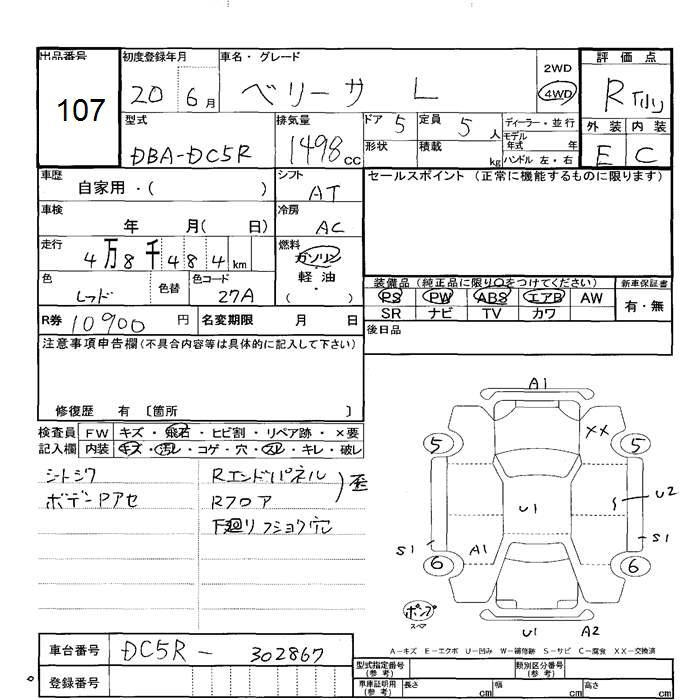 出品番号 初度登録年月 車名・グレード 評価点
107
20 6月 ベリーサ L
2WD
4WD
外装 内装
E C
型式 排気量 ドア 5 定員 5人 ディーラー・並行
DBA-DC5R 1498cc 形状 積載 kg モデル年式 年
ハンドル 左・右
車歴 自家用・( ) シフト AT
セールスポイント (正常に機能するものに限ります)
車検 年 月( 日) 冷房 AC
走行 4万8千484km 燃料 ガソリン・軽油・( )
色 レッド 色替 色コード 27A
装備品 (純正品に限り○をつけてください) 新車保証書
PS PW ABS エアB AW 有・無
SR ナビ TV カワ
後日品
R券 10900円 名変期限 月 日
注意事項申告欄(不具合内容等は具体的に記入して下さい)
修復歴 有 〔箇所 〕
検査員 FW キズ・飛石・ヒビ割・リペア跡・×要
記入欄 内装 キズ・汚レ・コゲ・穴・スレ・キレ・破レ
シートシワ Rエンドパネル
ボデーPアセ Rフロア 歪
下廻リフショク穴
A1
XX
5 5
U1
U2
S1 A1 S1
6 6
U1 A2
A-キズ E-エクボ U-凹み W-補修跡 S-サビ C-腐食 XX-交換済
車台番号 DC5R-302867
登録番号
型式指定番号(参考) 類別区分番号(参考)
車庫証明用(参考) 長さ cm 幅 cm 高さ cm